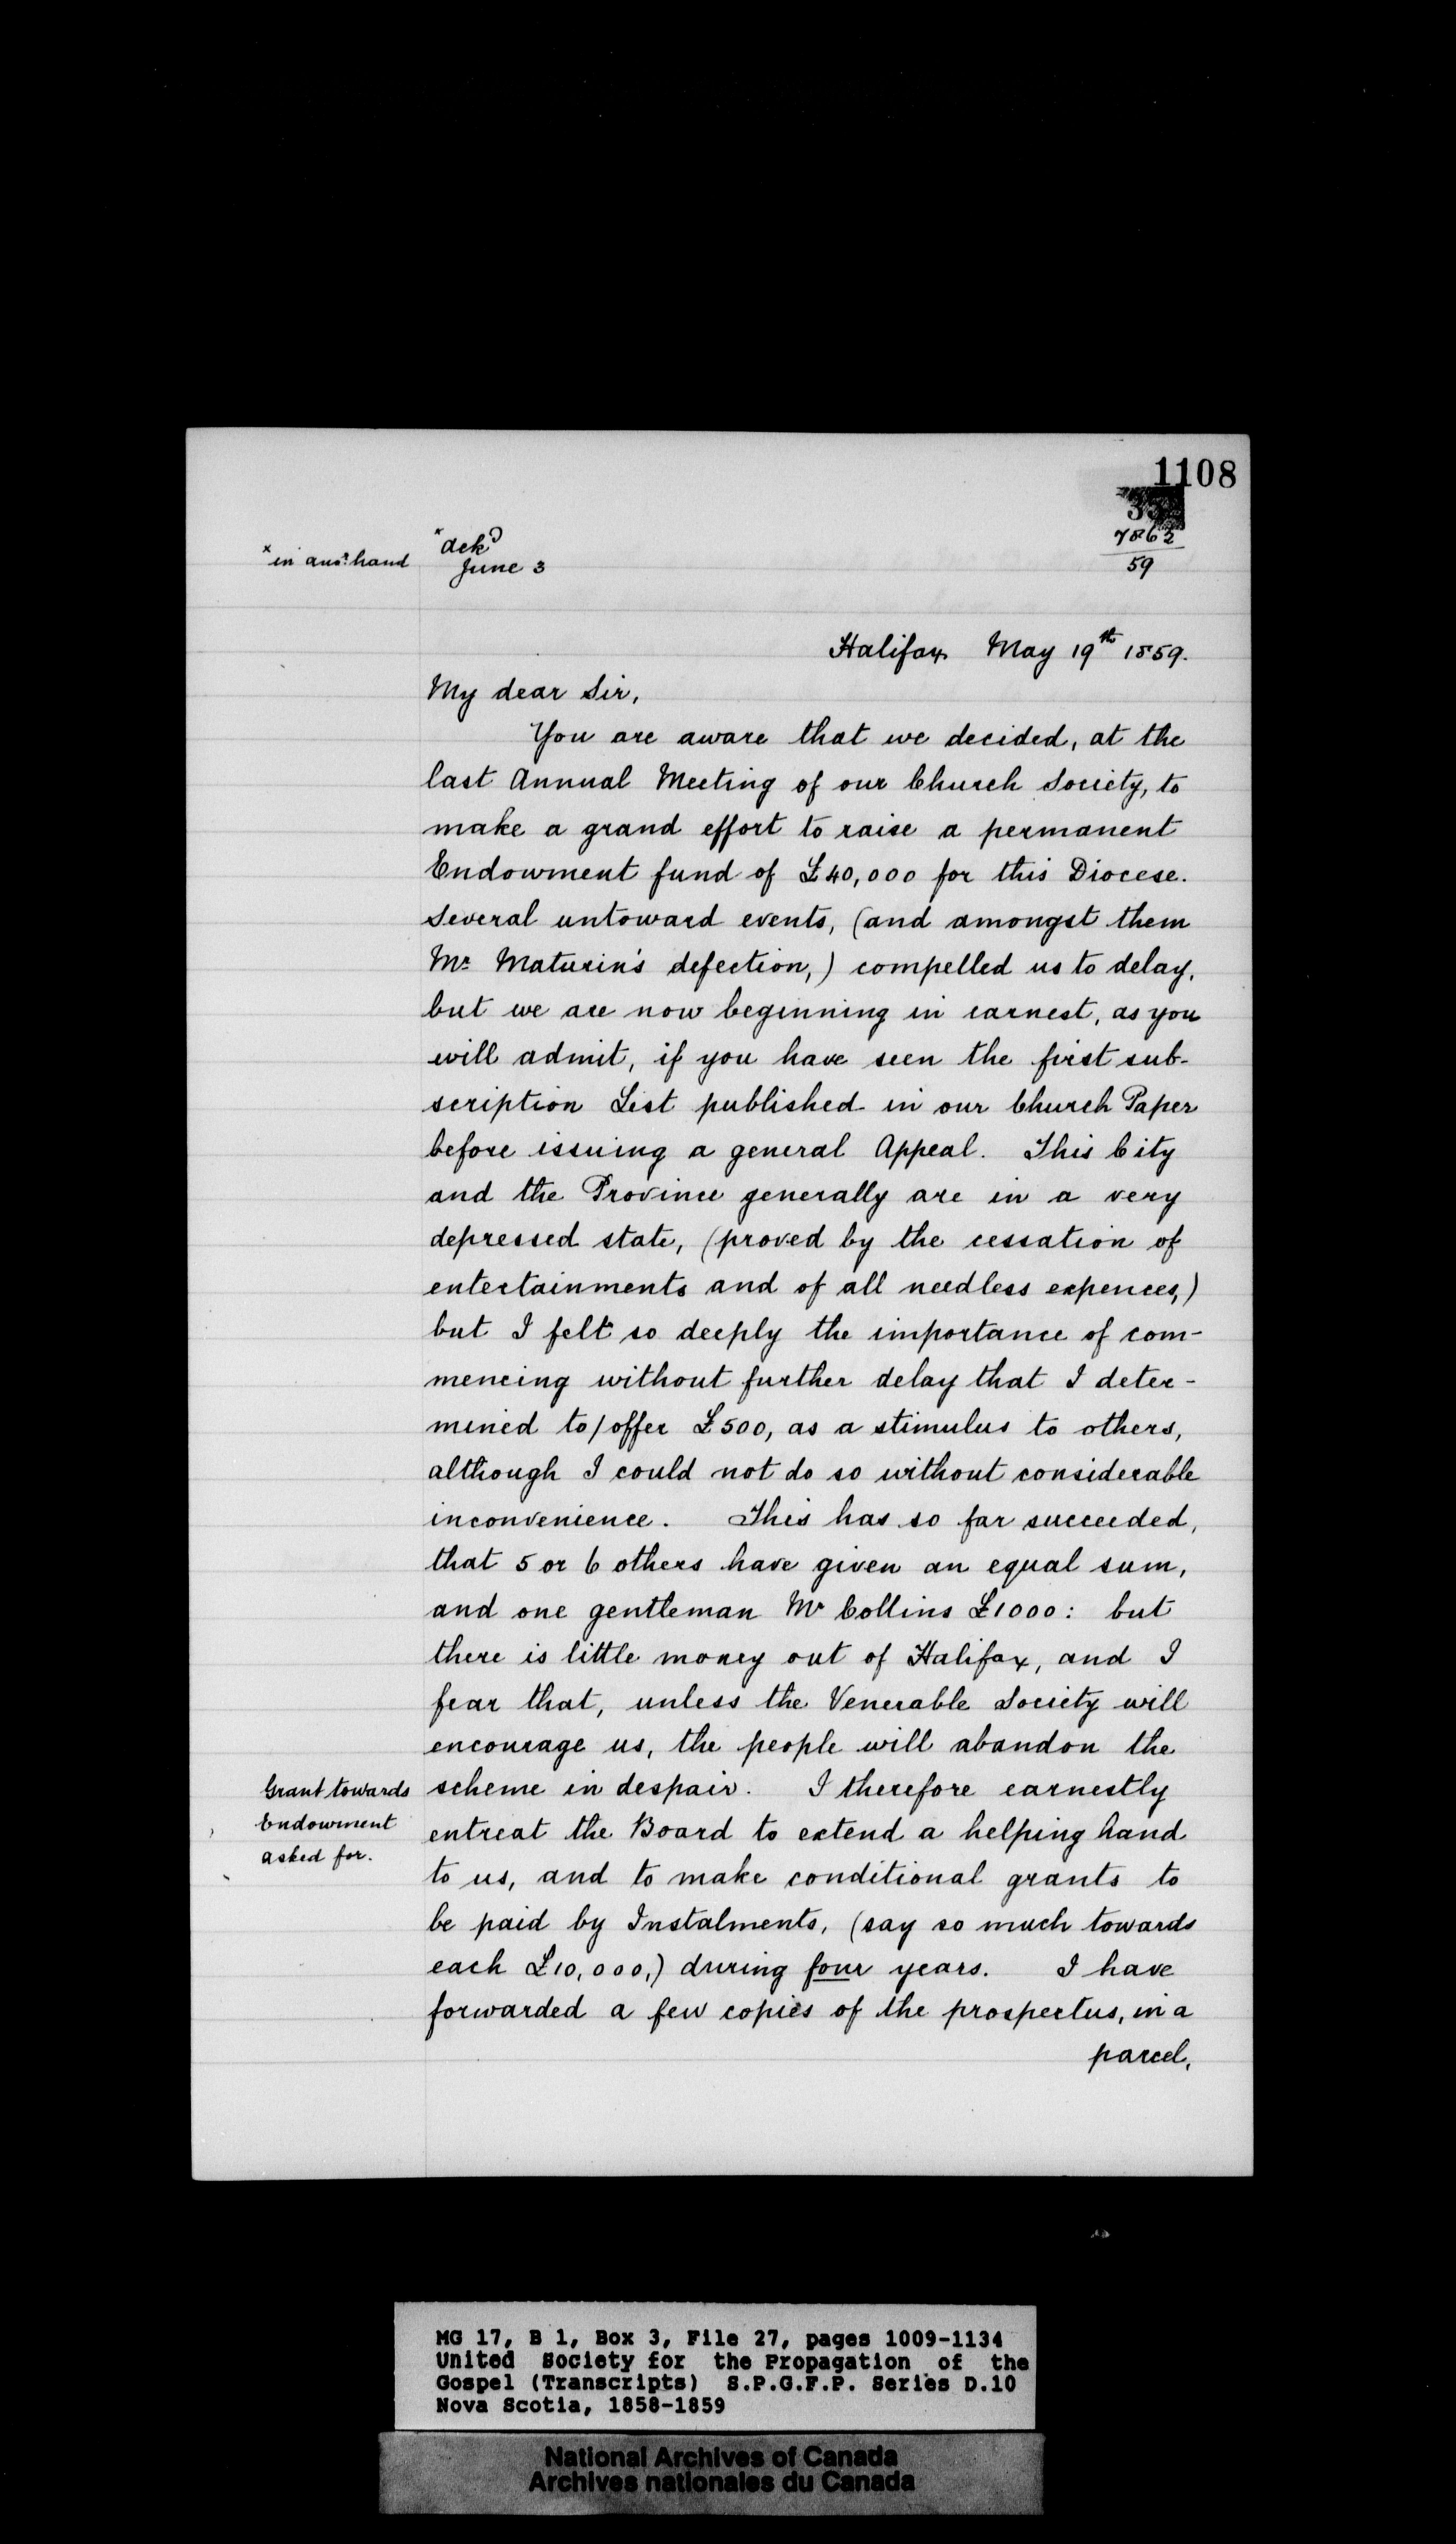 1108
7862
59
×in anr. hand
×ackd
June 3
Halifax May 19th 1859.
My dear Sir,
You are aware that we decided, at the
last Annual Meeting of our Church Society, to
make a grand effort to raise a permanent
Endowment fund of £40,000 for this Diocese.
Several untoward events, (and amongst them
Mr Maturin's defection,) compelled us to delay,
but we are now beginning in earnest, as you
will admit, if you have seen the first sub-
scription List published in our Church Paper
before issuing a general Appeal. This City
and the Province generally are in a very
depressed state, (proved by the cessation of
entertainments and of all needless expences,)
but I felt so deeply the importance of com-
mencing without further delay that I deter-
mined to/offer £500, as a stimulus to others,
although I could not do so without considerable
inconvenience. This has so far succeeded,
that 5 or 6 others have given an equal sum,
and one gentleman Mr Collins £1000: but
there is little money out of Halifax, and I
fear that, unless the Venerable Society will
encourage us, the people will abandon the
scheme in despair. I therefore earnestly
Grant towards
Endowment
asked for.
entreat the Board to extend a helping hand
to us, and to make conditional grants to
be paid by Instalments, (say so much towards
each £10,000,) during four years. I have
forwarded a few copies of the prospectus, in a
parcel,
MG 17, B 1, Box 3, File 27, pages 1009-1134
United Society for the Propagation of the
Gospel (Transcripts) S.P.G.F.P. Series D.10
Nova Scotia, 1858-1859
National Archives of Canada
Archives nationales du Canada